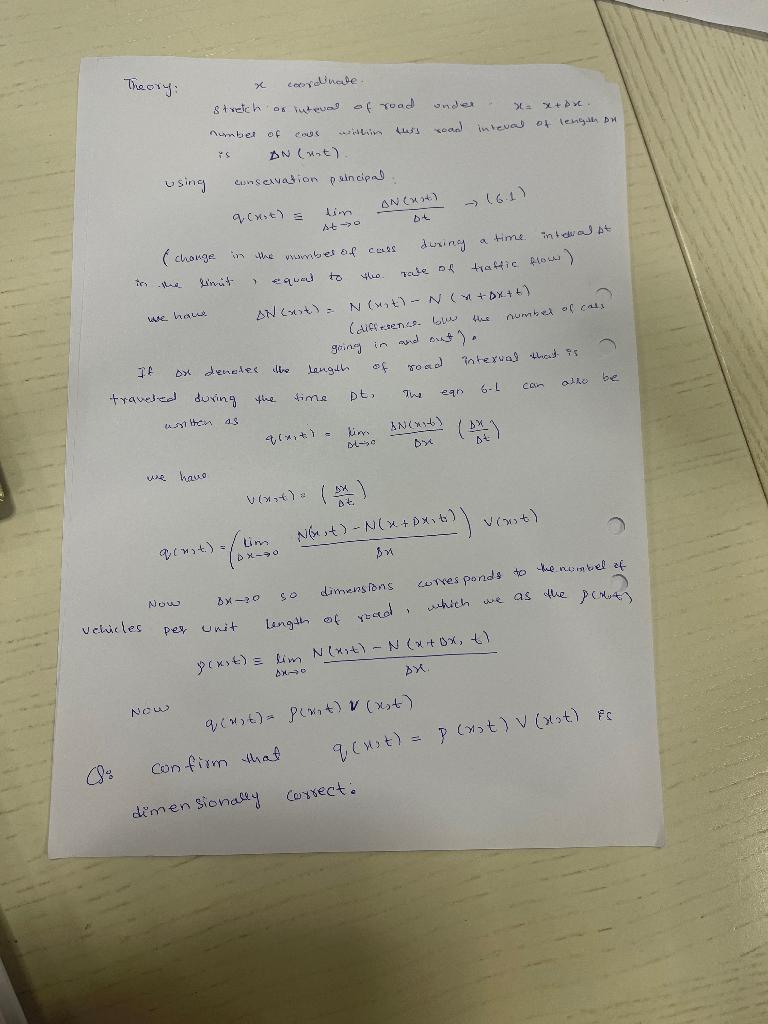 Theory: x coordinate.
stretch or inteval of road under x = x+Δx.
number of cars within this road inteval of length Δx
is ΔN(x,t).
using conservation principal:
q(x,t) ≡ lim Δt→0 ΔN(x,t)/Δt → (6.1)
(change in the number of cars during a time inteval Δt
in the limit, equal to the rate of traffic flow)
we have ΔN(x,t) = N(x,t) - N(x+Δx+t)
(difference b/w the number of cars
going in and out).
If Δx denotes the length of road interval that is
traveled during the time Δt, The eqn 6.1 can also be
written as
q(x,t) = lim Δt→0 ΔN(x,t)/Δx (Δx/Δt)
we have
V(x,t) = (Δx/Δt)
q(x,t) = (lim Δx→0 N(x,t) - N(x+Δx,t)/Δx) V(x,t)
Now Δx→0 so dimensions corresponds to the number of
vehicles per unit length of road, which we as the ρ(x,t)
ρ(x,t) ≡ lim Δx→0 N(x,t) - N(x+Δx, t)/Δx.
Now
q(x,t) = ρ(x,t) V(x,t)
Q: Confirm that q(x,t) = ρ(x,t) V(x,t) is
dimensionally correct.